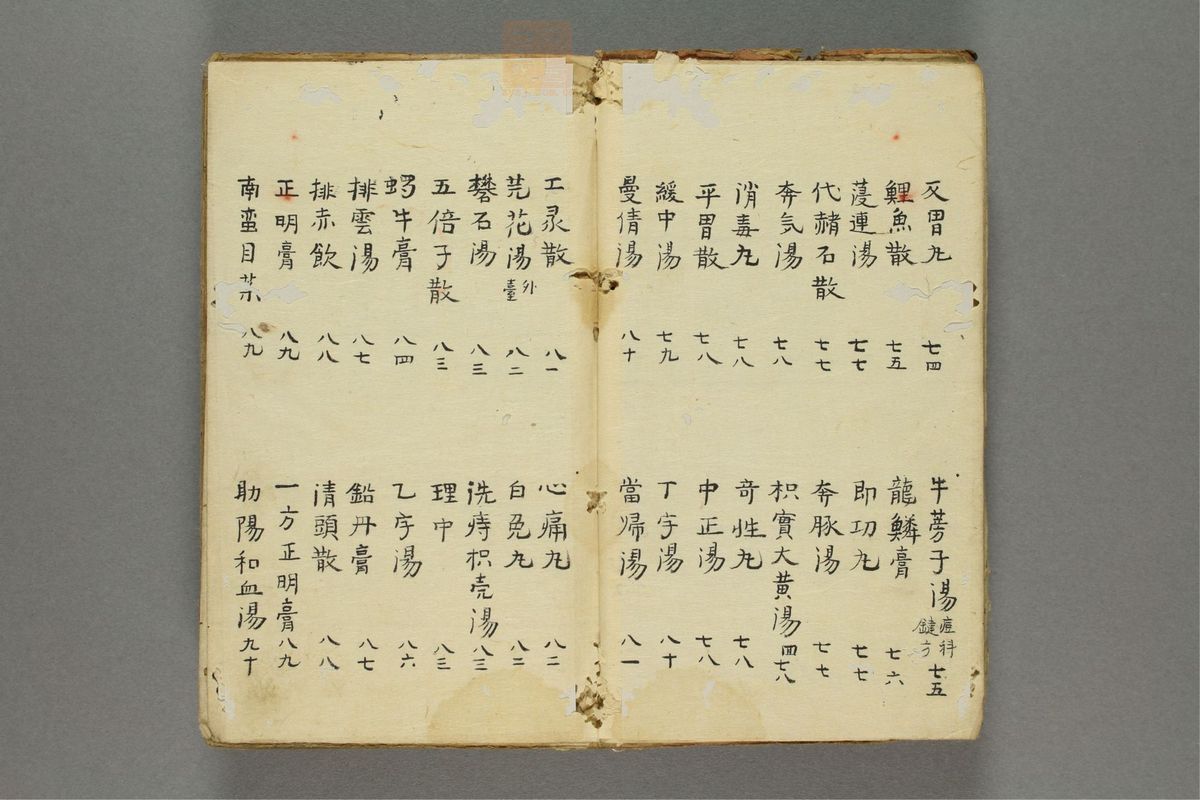 反胃丸 七四
牛蒡子湯 痘科鍵方 七五
鯉魚散 七五
龍鱗膏 七六
連湯 七七
即功丸 七七
代赭石散 七七
奔豚湯 七七
奔気湯 七八
枳實大黄湯 四七八
消毒丸 七八
奇性丸 七八
平胃散 七八
中正湯 七八
緩中湯 七九
丁字湯 八十
曼倩湯 八十
當帰湯 八一
散 八一
心痛丸 八二
芫花湯 外臺 八二
白兔丸 八二
礬石湯 八三
洗痔枳壳湯 八三
五倍子散 八三
理中 八三
蝸牛膏 八四
乙字湯 八六
排雲湯 八七
鉛丹膏 八七
排赤飲 八八
清頭散 八八
正明膏 八九
一方正明膏 八九
南蛮目 八九
助陽和血湯 九十